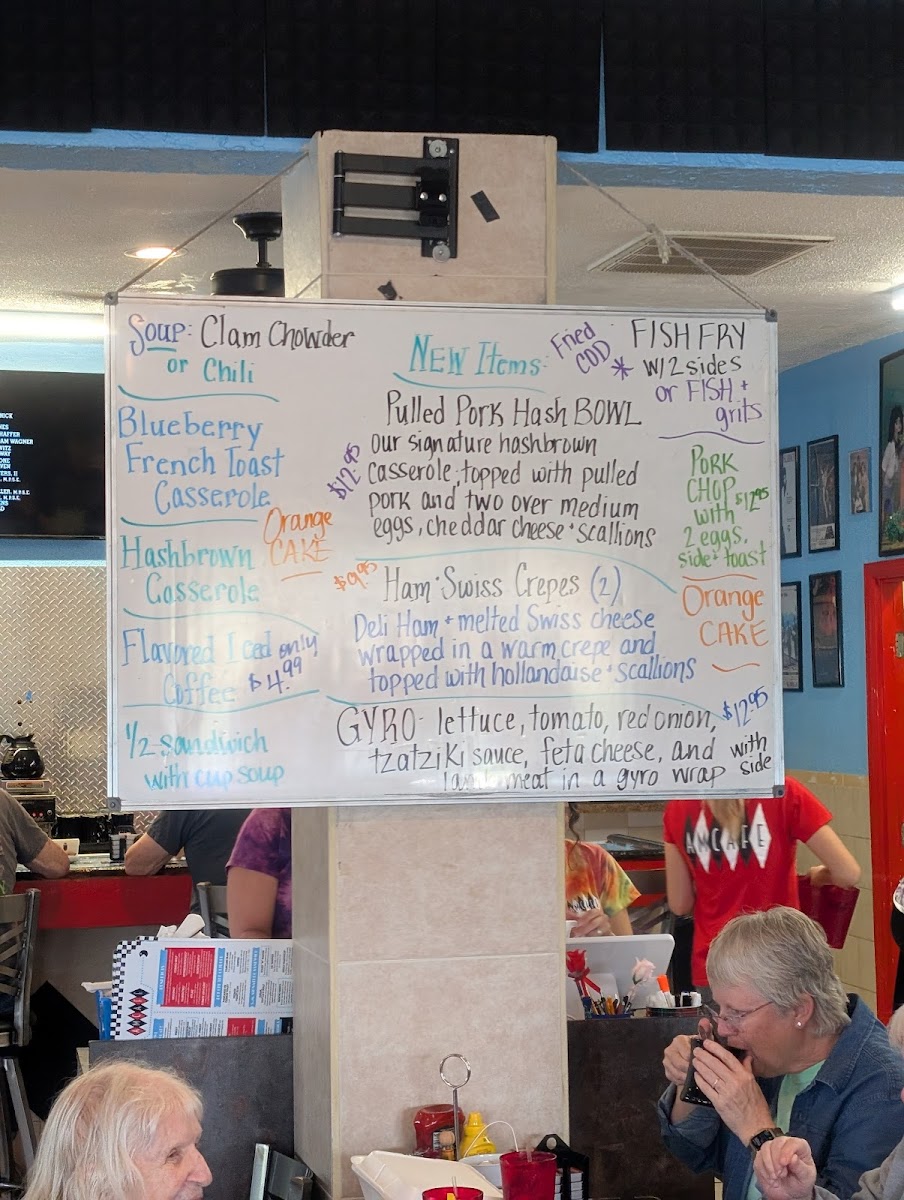 Soup: Clam Chowder
or Chili
Blueberry
French Toast
Casserole
Orange
CAKE
Hashbrown
Casserole
Flavored Iced only
Coffee $4.99
1/2 sandwich
with cup soup
NEW Items:
Pulled Pork Hash BOWL
$12.95
our signature hashbrown
casserole, topped with pulled
pork and two over medium
eggs, cheddar cheese + scallions
$9.95
Ham + Swiss Crepes (2)
Deli Ham + melted Swiss cheese
wrapped in a warm crepe and
topped with hollandaise + scallions
GYRO - lettuce, tomato, red onion,
tzatziki sauce, feta cheese, and
meat in a gyro wrap
$12.95
with
side
Fried
COD *
FISH FRY
w/2 sides
or FISH +
grits
PORK
CHOP $12.95
with
2 eggs,
side + toast
Orange
CAKE